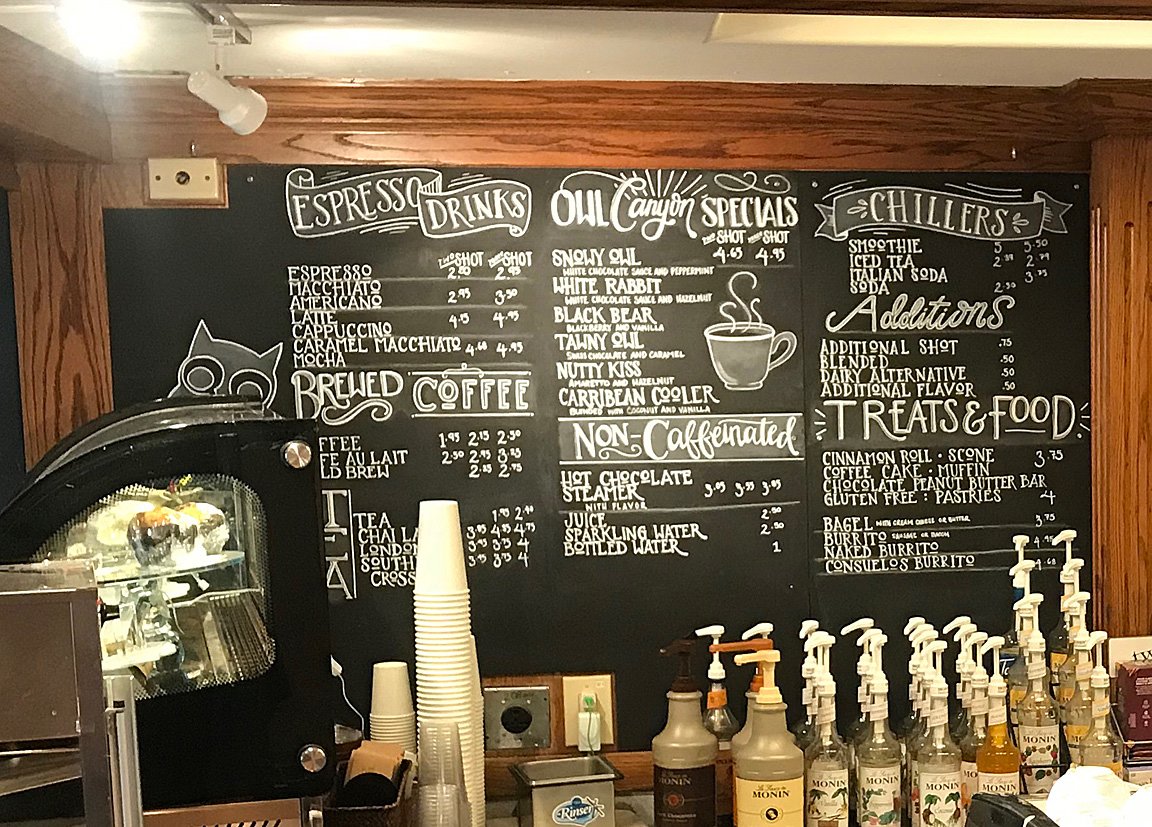 ESPRESSO DRINKS
TWO SHOT SHOT
ESPRESSO 2.50 2.95
MACCHIATO
AMERICANO 2.95 3.50
LATTE
CAPPUCCINO 4.5 4.95
CARAMEL MACCHIATO 4.60 4.95
MOCHA
BREWED COFFEE
FFEE 1.95 2.15 2.50
FE AU LAIT 2.50 2.95 3.25
LD BREW 2.25 2.75
TEA
TEA 1.95 2.40
CHAI LA 4.75
LONDON 4
SOUTH 4
CROSS
OWL Canyon SPECIALS
TWO SHOT SHOT
4.65 4.95
SNOWY OWL
WHITE CHOCOLATE SAUCE AND PEPPERMINT
WHITE RABBIT
WHITE CHOCOLATE SAUCE AND HAZELNUT
BLACK BEAR
BLACKBERRY AND VANILLA
TAWNY OWL
SWISS CHOCOLATE AND CARAMEL
NUTTY KISS
AMARETTO AND HAZELNUT
CARRIBEAN COOLER
BLENDED WITH COCONUT AND VANILLA
NON-Caffeinated
HOT CHOCOLATE
STEAMER 3.05 3.55 3.85
WITH FLAVOR
JUICE 2.50
SPARKLING WATER 2.50
BOTTLED WATER 1
CHILLERS
SMOOTHIE 5 5.50
ICED TEA 2.39 2.79
ITALIAN SODA 3.75
SODA 2.50
Additions
ADDITIONAL SHOT .75
BLENDED .50
DAIRY ALTERNATIVE .50
ADDITIONAL FLAVOR .50
TREATS & FOOD
CINNAMON ROLL • SCONE 3.75
COFFEE CAKE • MUFFIN
CHOCOLATE PEANUT BUTTER BAR
GLUTEN FREE : PASTRIES 4
BAGEL WITH CREAM CHEESE OR BUTTER 3.75
BURRITO SAUSAGE OR BACON 4.95
NAKED BURRITO
CONSUELOS BURRITO 4.68
Rinser
MONIN
MONIN
MONIN
MONIN
MONIN
MONIN
MONIN
tw